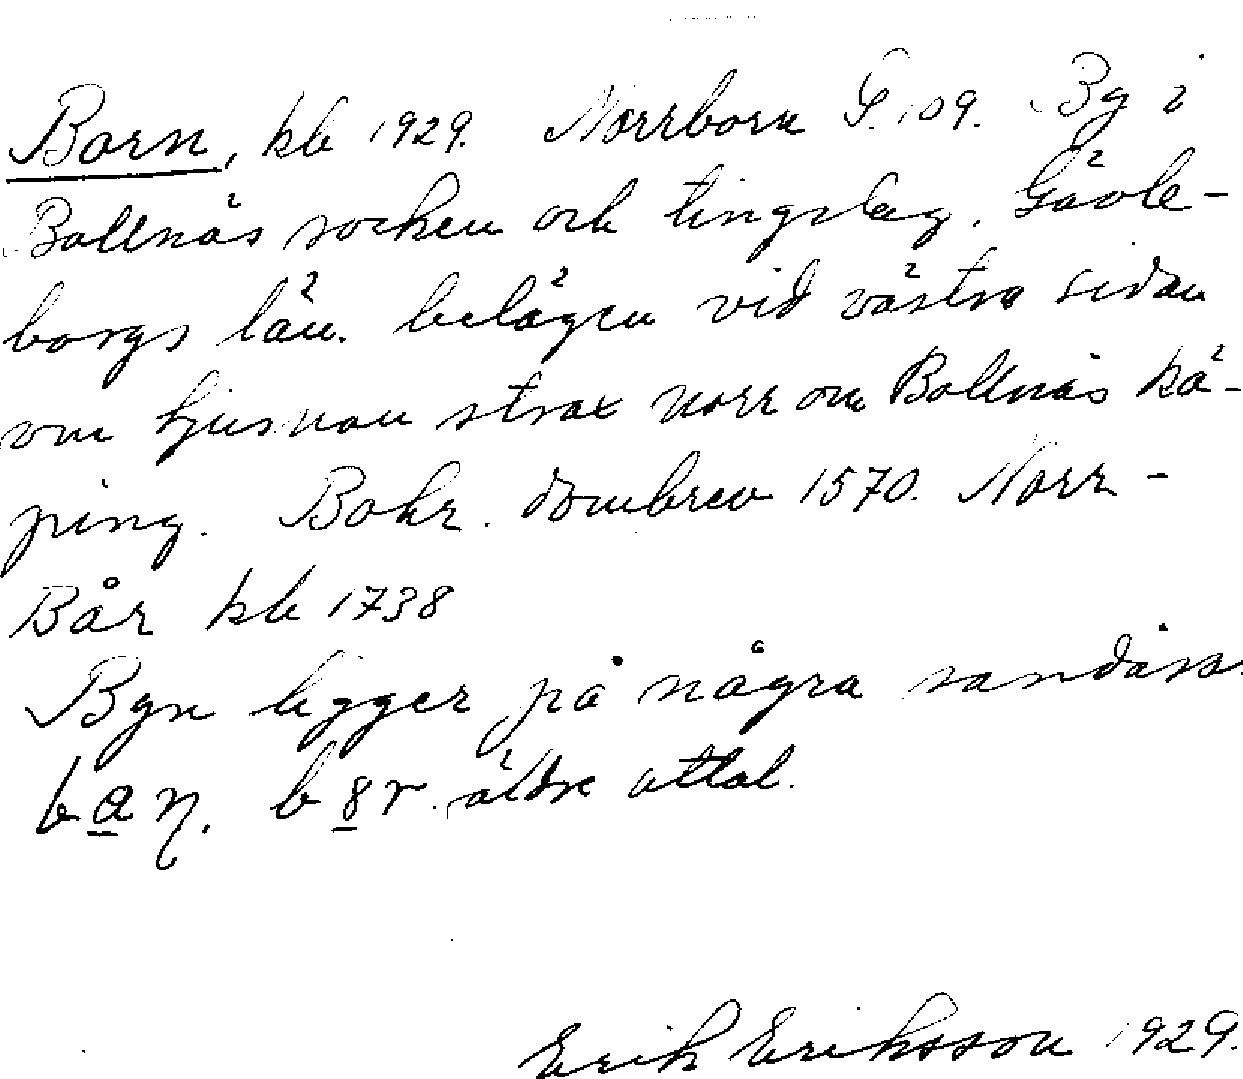 Born, kb 1929. Norrborn G. 109. By i
Bollnäs socken och tingslag. Gävle-
borgs län. belägen vid västra sidan
om Ljusnan strax norr om Bollnäs kö-
ping. Bohr. dombrev 1570. Norr-
Bår kb 1738
Byn ligger på några sandåsar
ban. b8r. äldre uttal.
Erik Eriksson 1929.